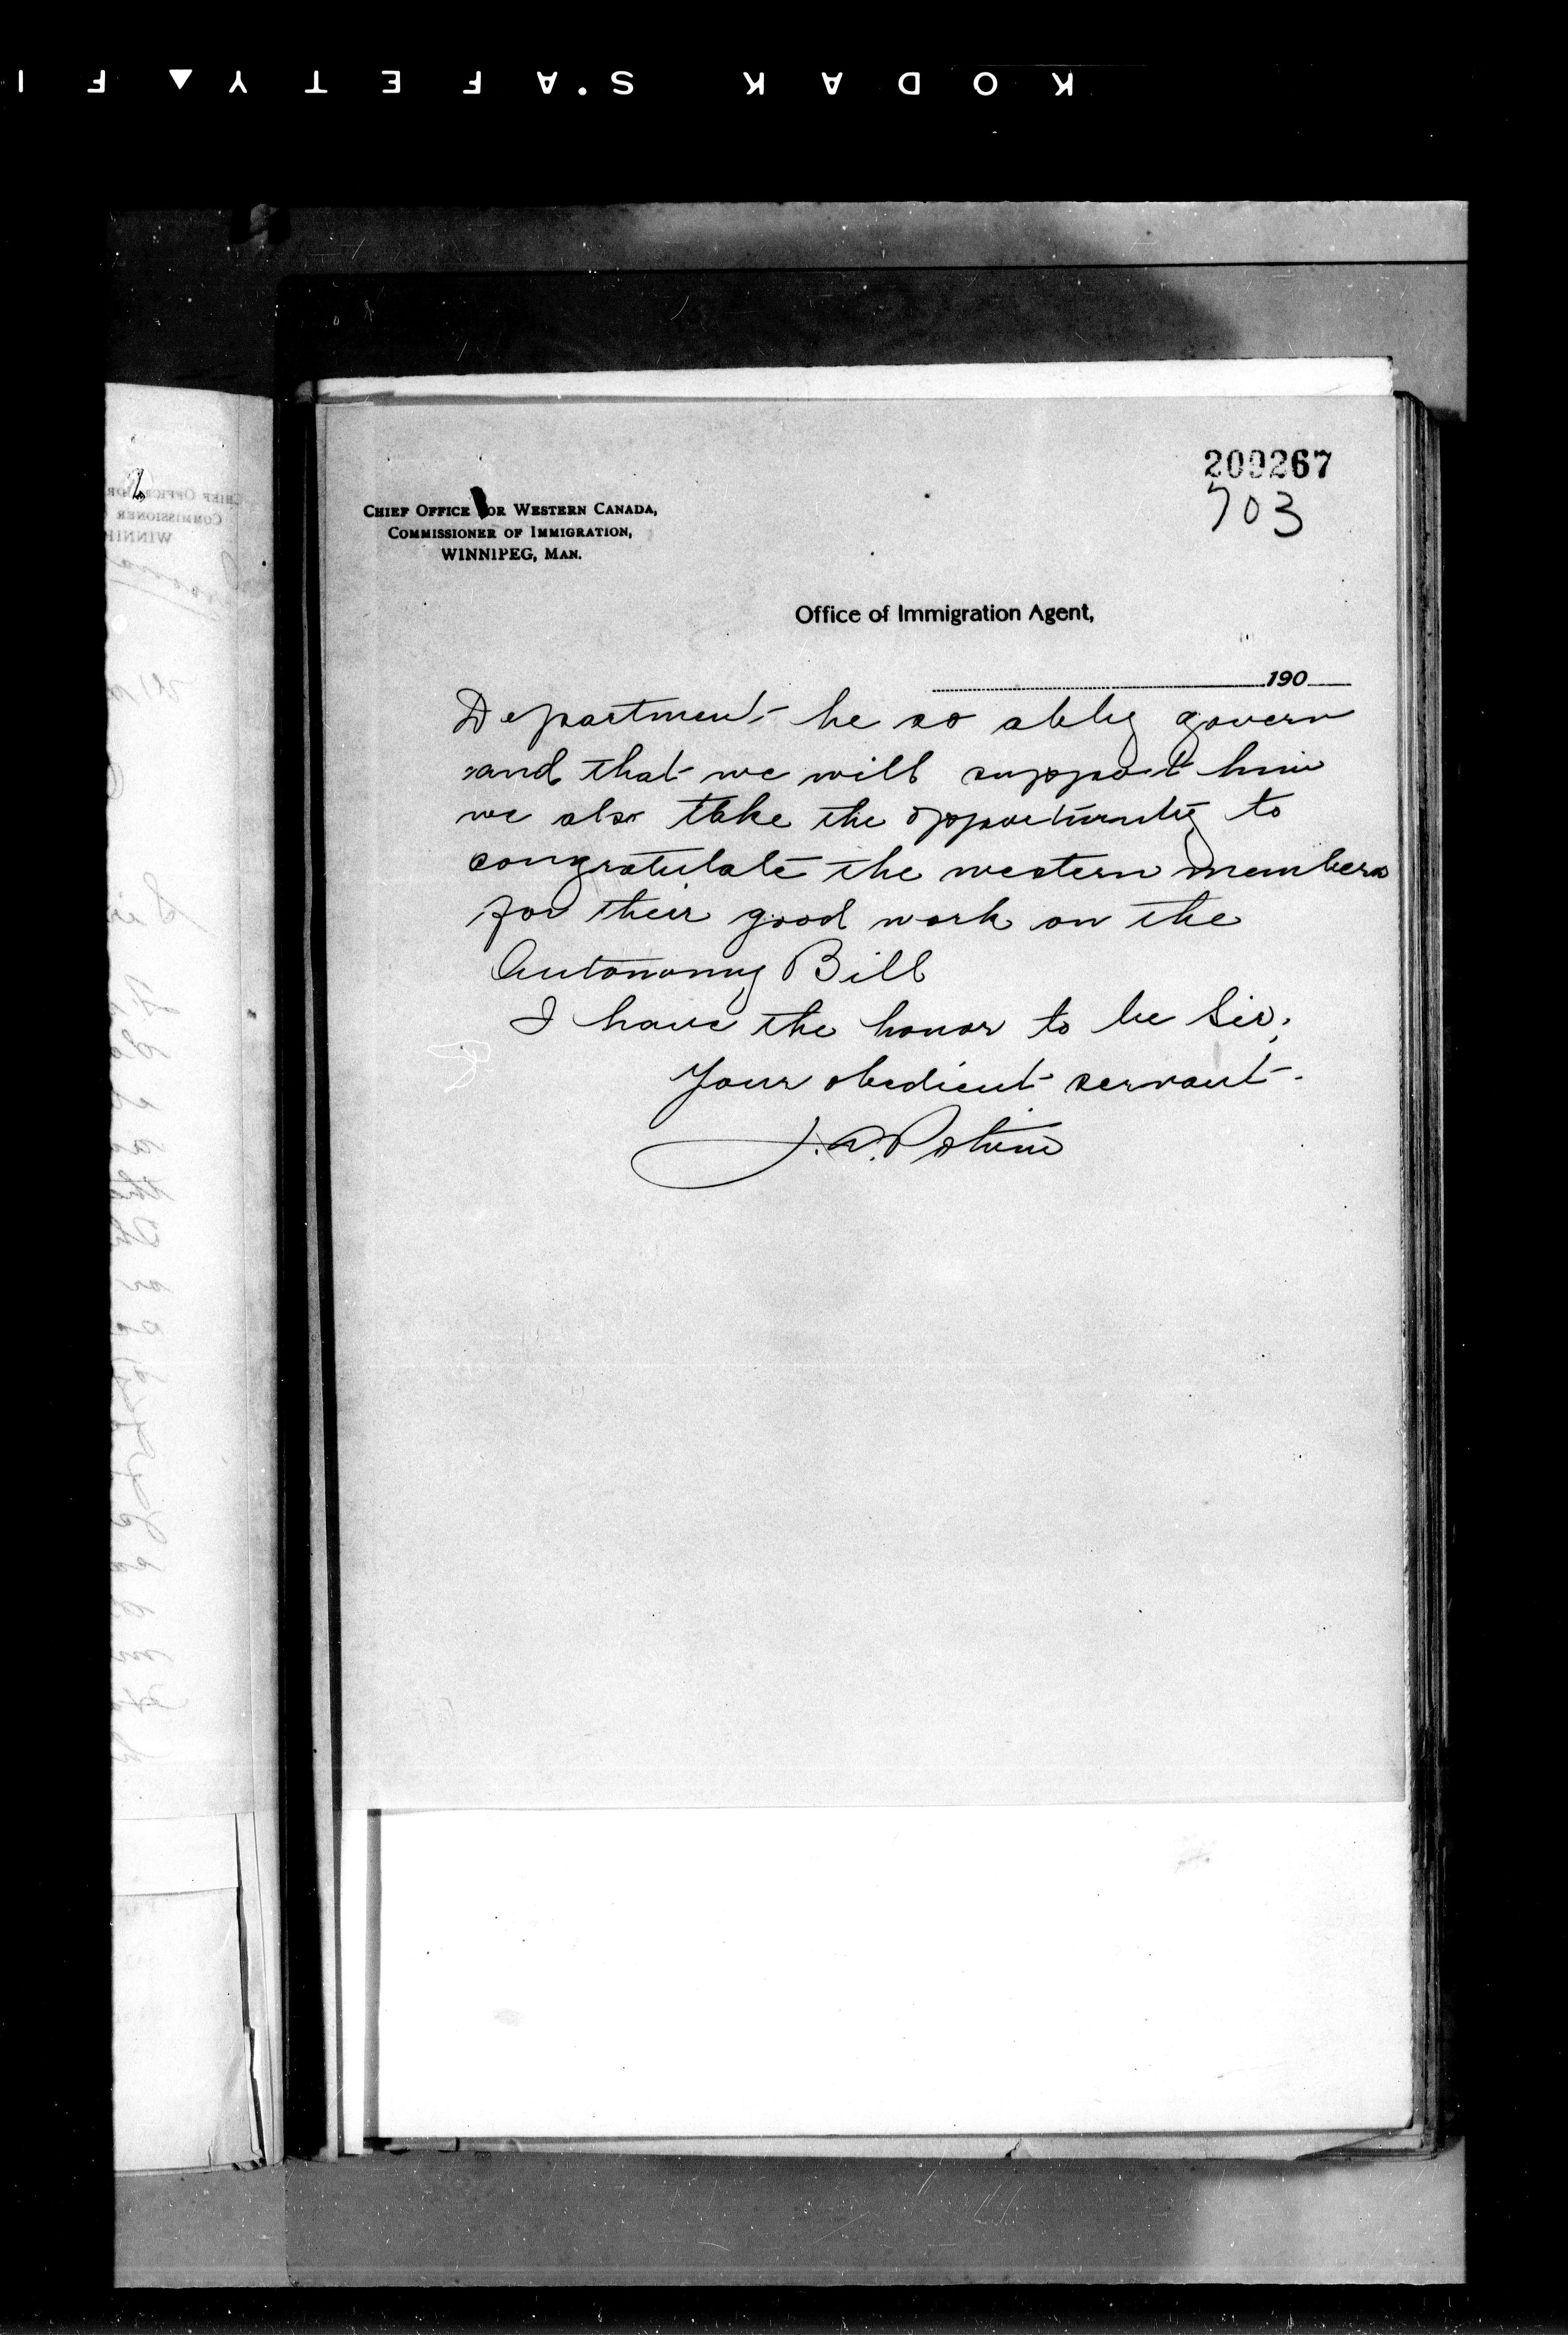 KODAK SAFETY FI
209267
703
CHIEF OFFICE FOR WESTERN CANADA,
COMMISSIONER OF IMMIGRATION,
WINNIPEG, MAN.
Office of Immigration Agent,
190
Department he so ably govern
and that we will support him
we also take the opportunity to
congratulate the western members
for their good work on the
Autonomy Bill
I have the honor to be Sir;
Your obedient servant.
J. A. Potvin